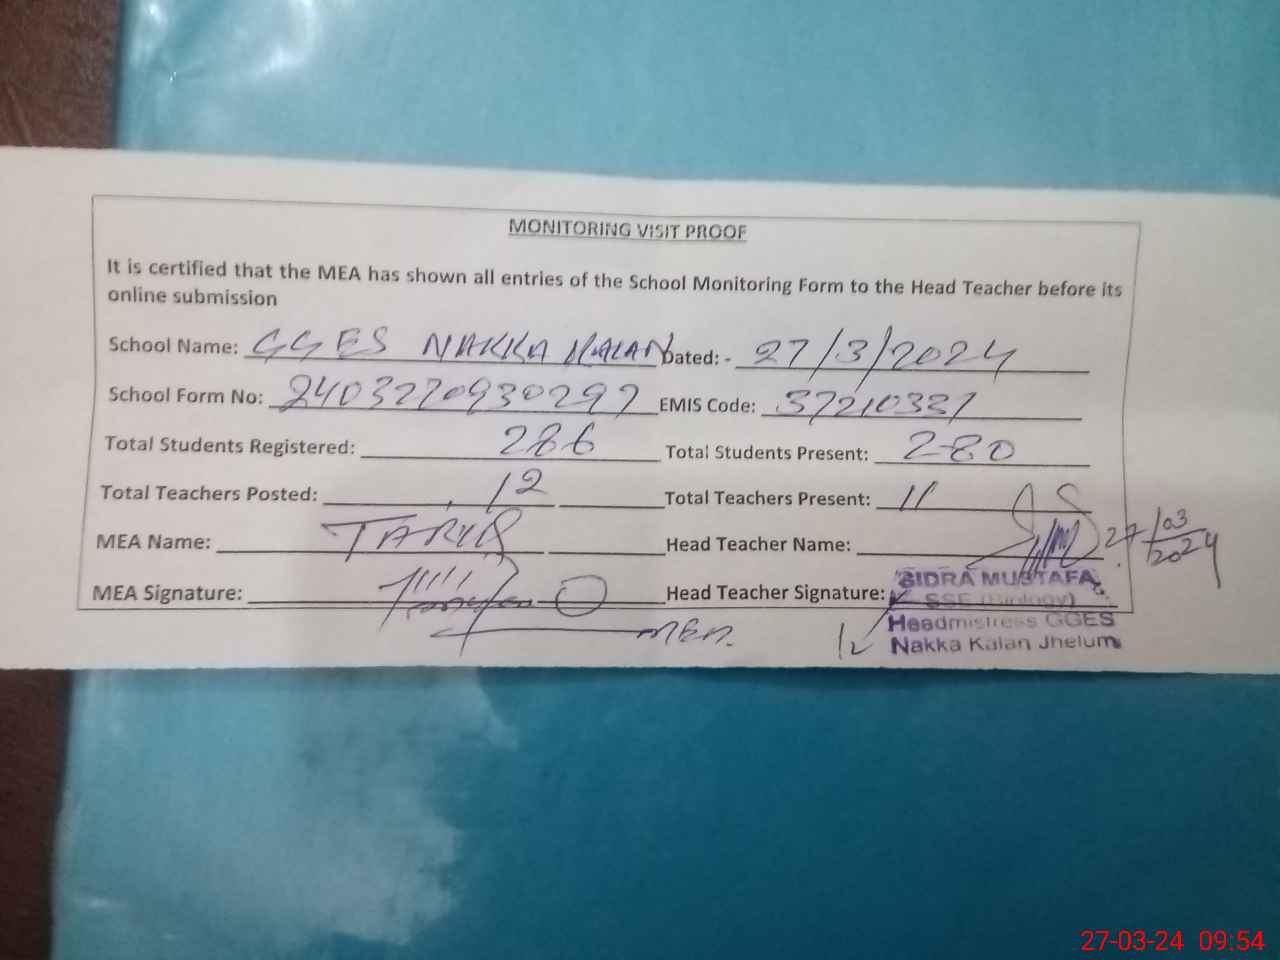 MONITORING VISIT PROOF
It is certified that the MEA has shown all entries of the School Monitoring Form to the Head Teacher before its
online submission
School Name: GGES NAKKA KALAN Dated: - 27/3/2024
School Form No: 2403220930297 EMIS Code: 37210337
Total Students Registered: 286 Total Students Present: 280
Total Teachers Posted: 12 Total Teachers Present: 11
MEA Name: TARIQ Head Teacher Name: 27/03/2024
MEA Signature: Head Teacher Signature: SIDRA MUSTAFA
SSE (Biology)
MEA. Headmistress GGES
Nakka Kalan Jhelum
27-03-24 09:54